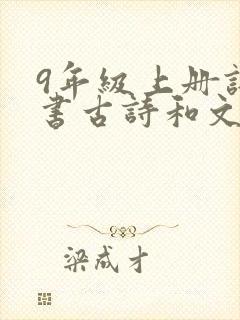 9年级上册
書古詩和文
梁成才